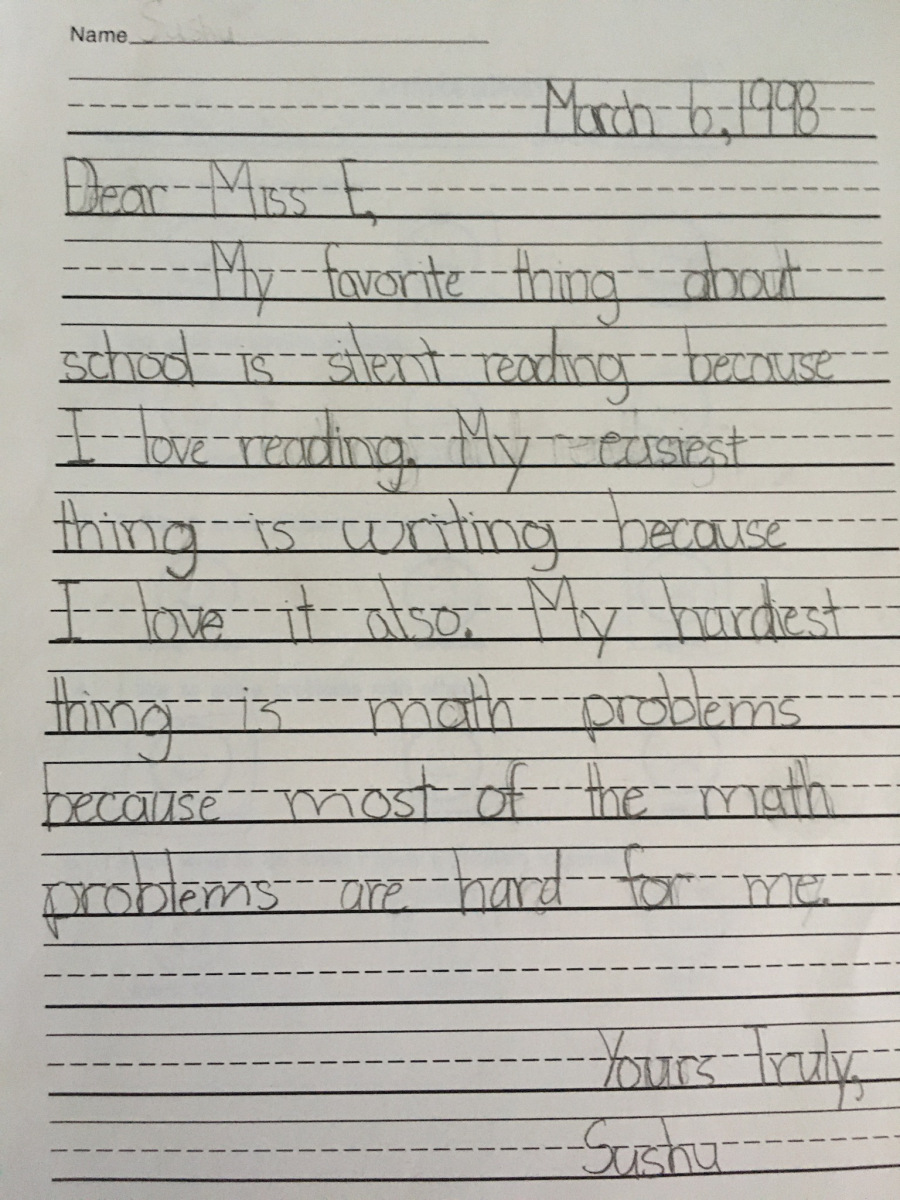 Name
March 6, 1998
Dear Miss E,
My favorite thing about
school is silent reading because
I love reading. My easiest
thing is writing because
I love it also. My hardiest
thing is math problems
because most of the math
problems are hard for me.
Yours Truly,
Sushu